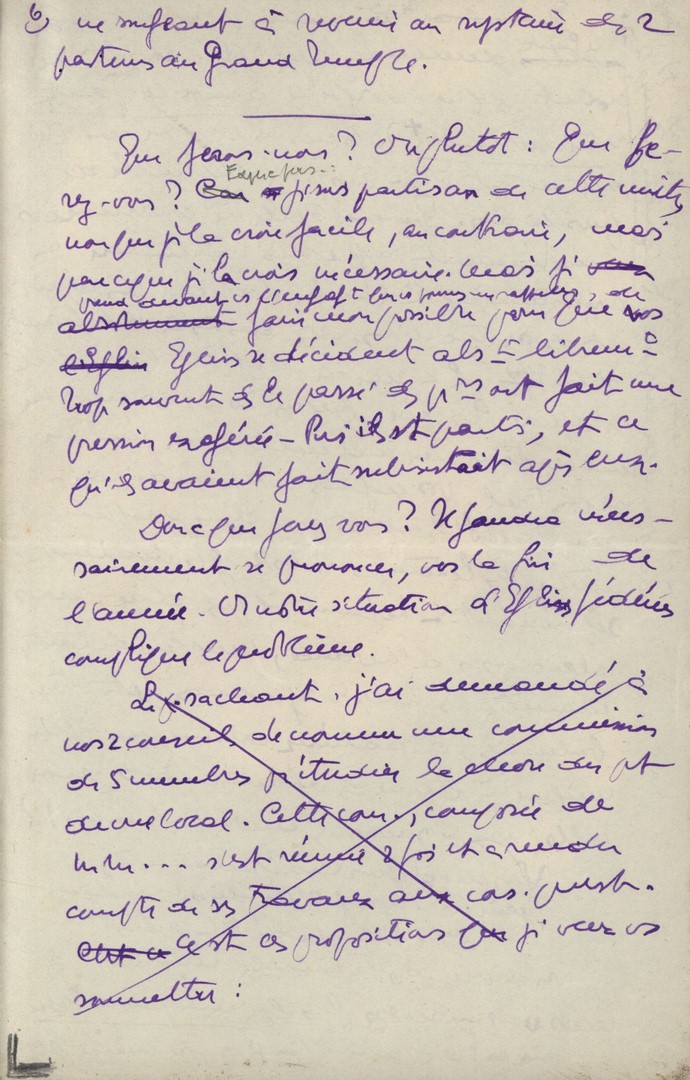 6) ne songeant à revenir au système des 2
pasteurs au Grand Temple.
Que ferons-nous? Ou plutôt: Que fe-
rez-vous? Car je suis partisan de cette unité,
non que je la croie facile, au contraire, mais
parce que je la crois nécessaire. Mais je
veux devant
absolument faire mon possible pour que vos
l'Eglise Eglises se décident abst libremt
Trop souvent ds le passé des prs ont fait une
pression exagérée - Puis ils st partis, et ce
qu'ils avaient fait subsistait après eux.
Donc que ferez vous? Il faudra néces-
sairement se prononcer, vers la fin de
l'année. Or notre situation d'Eglises fédérées
complique le problème.
Le sachant, j'ai demandé à
nos 2 conseils de nommer une commission
de 5 membres pr étudier la chose du pt
de vue local. Cette com., composée de
MM... s'est réunie 2 fois et a rendu
compte de ses travaux aux cons. presb.
C'est ce C'est ces propositions que je veux vs
soumettre: